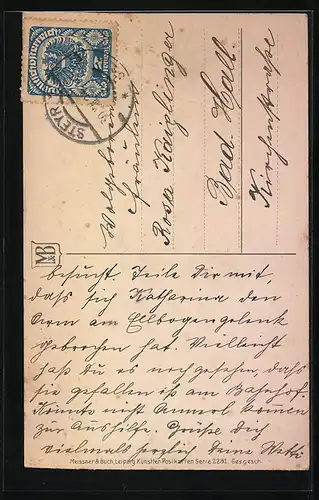 Deutschösterreich
2
STEYR
Wohlgeboren
Fräulein
Rosa Kaizlinger
Bad Hall
Kirchenstraße
M&B
besucht. Teile Dir mit,
daß sich Katharina den
Arm am Elbogengelenk
gebrochen hat. Vielleicht
haßt Du es noch gesehen, daß
sie gefallen ist am Bahnhof.
Könnte nicht Annerl komen
zur Aushilfe. Grüße Dich
vielmals herzlich Deine Wetti
Meissner & Buch, Leipzig Künstler-Postkarten Serie 2281. Ges. gesch.